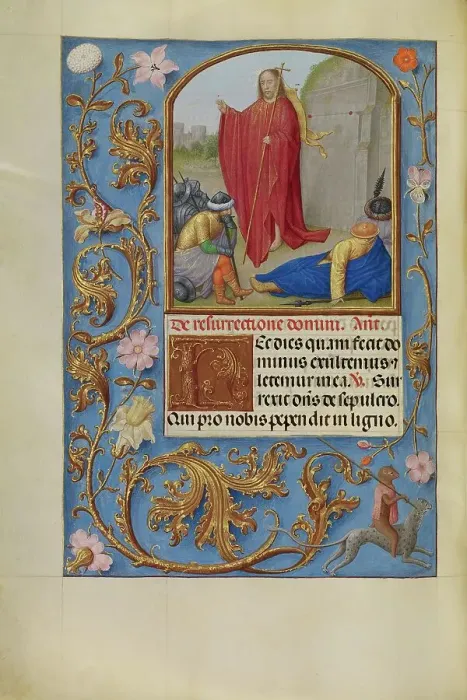 De resurrectione domini. Ant
Hec dies quam fecit do
minus exultemus ⁊
letemur in ea. V. Sur
rexit dn̄s de sepulcro.
Qui pro nobis pependit in ligno.